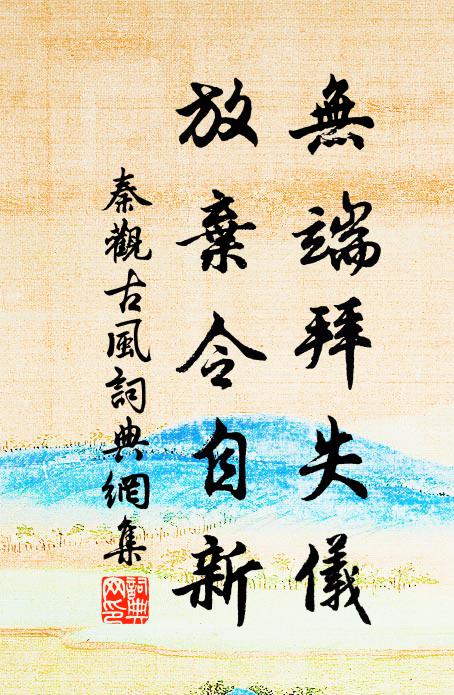 無端拜失儀
放棄令自新
秦觀古風詞典網集